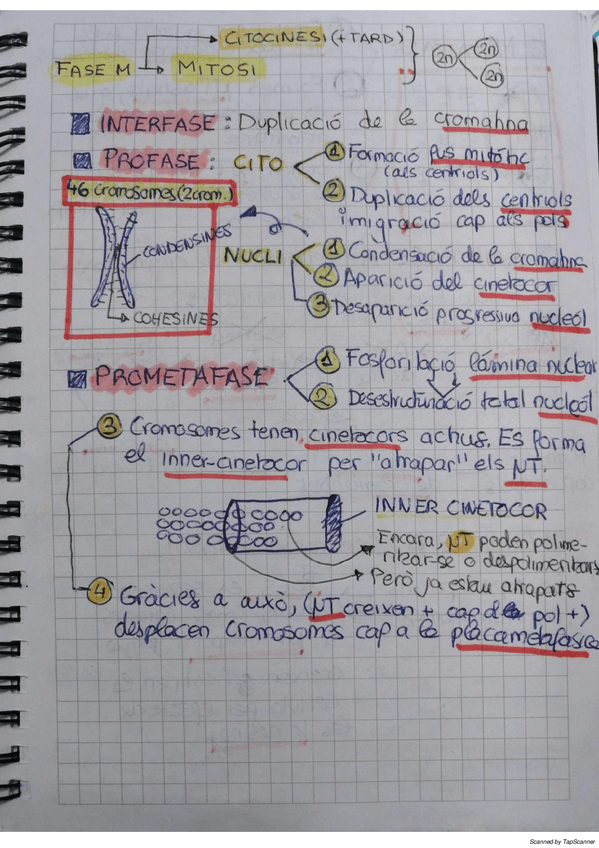 CITOCINESI (+ TARD)
FASE M → MITOSI
2n 2n 2n
INTERFASE: Duplicació de la cromatina
PROFASE: CITO
1 Formació fus mitòtic
(als centriols)
2 Duplicació dels centriols
i migració cap als pols
46 cromosomes (2 crom.)
CONDENSINES
COHESINES
NUCLI
1 Condensació de la cromatina
2 Aparició del cinetocor
3 Desaparició progressiva nucleol
PROMETAFASE
1 Fosforilació làmina nuclear
2 Desestructuració total nucleol
3 Cromosomes tenen cinetocors actius. Es forma
el inner-cinetocor per "atrapar" els μT.
INNER CINETOCOR
Encara, μT poden polime-
ritzar-se o despolimeritzars
Però ja estau atrapats
4 Gràcies a això, (μT creixen + cap de pol +)
desplacen cromosomes cap a la placa metafàsica
Scanned by TapScanner